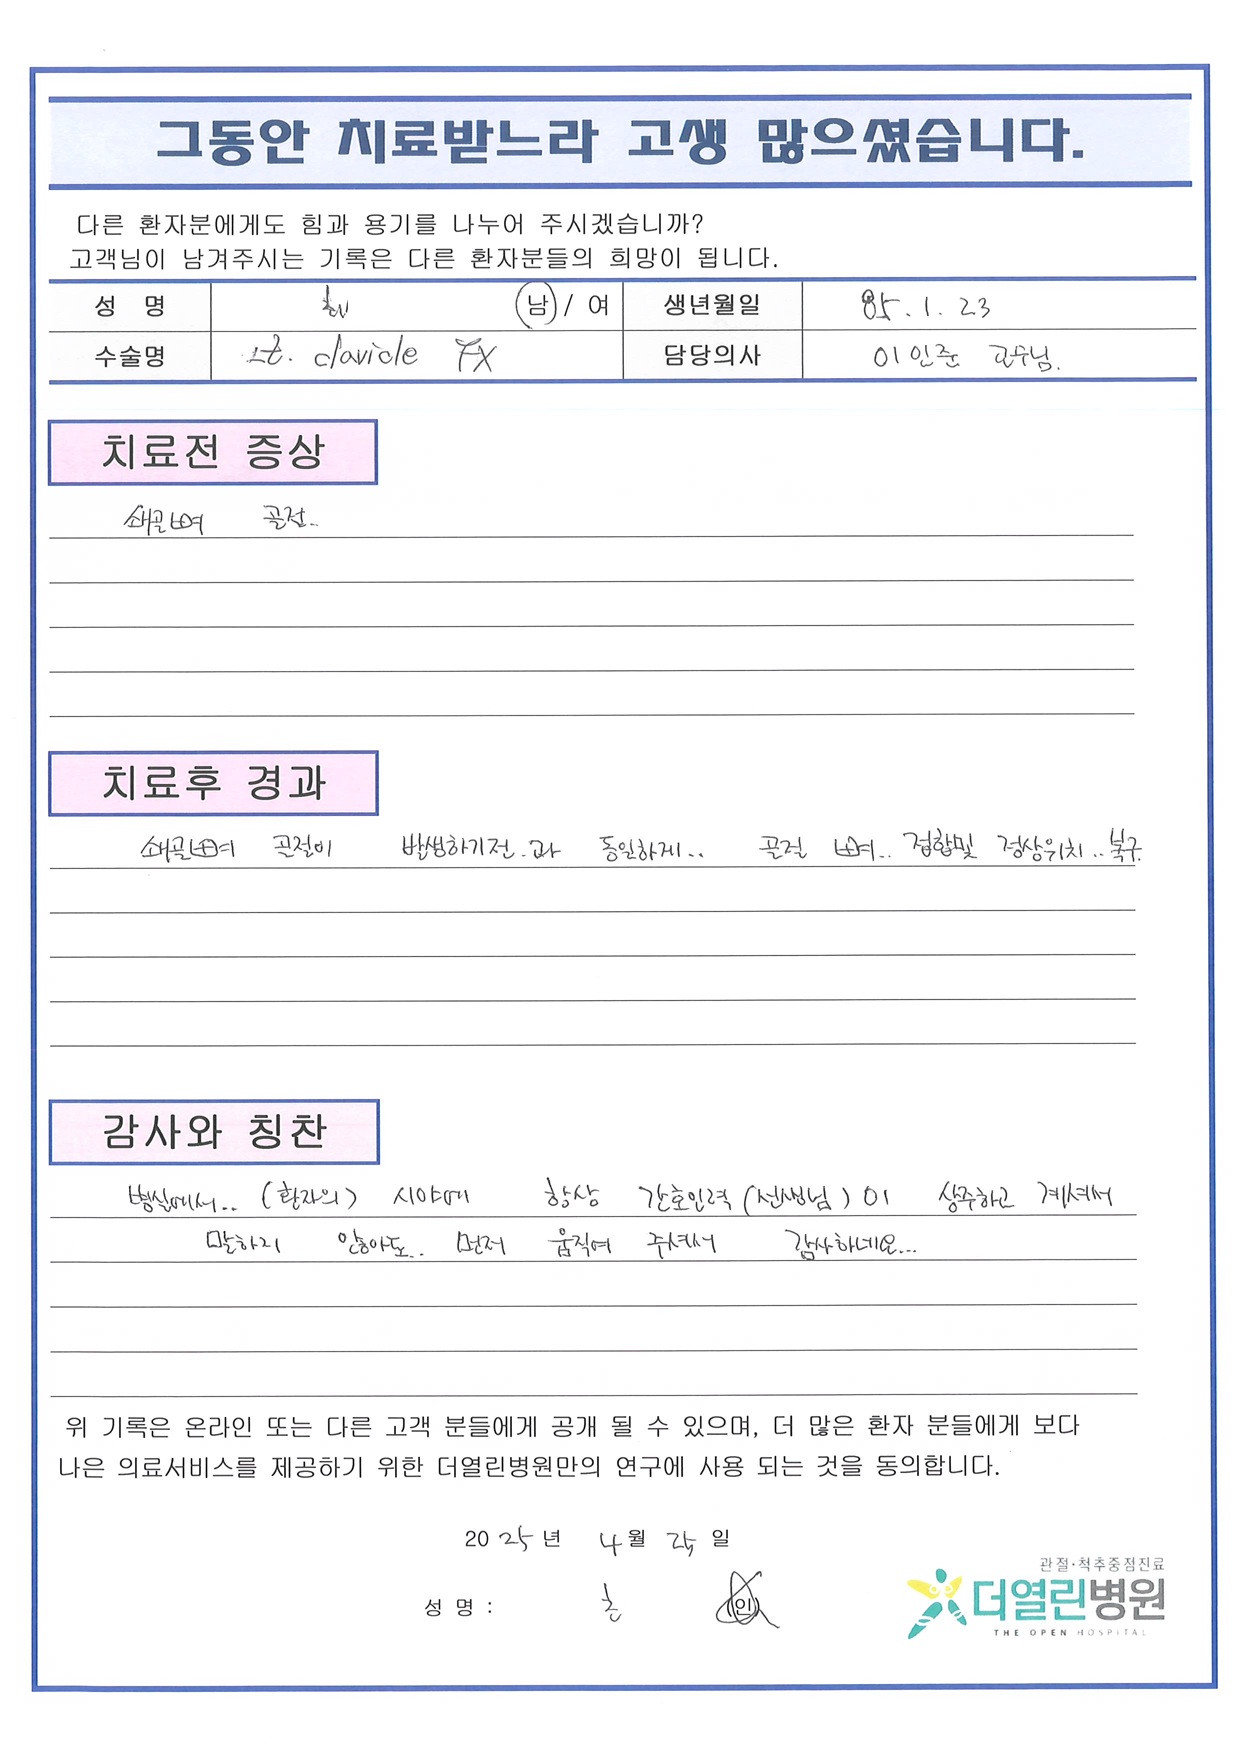 그동안 치료받느라 고생 많으셨습니다.
다른 환자분에게도 힘과 용기를 나누어 주시겠습니까?
고객님이 남겨주시는 기록은 다른 환자분들의 희망이 됩니다.
성 명 남 / 여 생년월일 85. 1. 23
수술명 Lt. clavicle FX 담당의사 이인준 교수님.
치료전 증상
쇄골뼈 골절..
치료후 경과
쇄골뼈 골절이 발생하기전.과 동일하게.. 골절 뼈.. 접합및 정상위치..복구
감사와 칭찬
병실에서.. (환자의) 시야에 항상 간호인력 (선생님) 이 상주하고 계셔서
말하지 않아도.. 먼저 움직여 주셔서 감사하네요...
위 기록은 온라인 또는 다른 고객 분들에게 공개 될 수 있으며, 더 많은 환자 분들에게 보다
나은 의료서비스를 제공하기 위한 더열린병원만의 연구에 사용 되는 것을 동의합니다.
2025년 4월 25일
성 명 : (인)
관절·척추중점진료
더열린병원
THE OPEN HOSPITAL